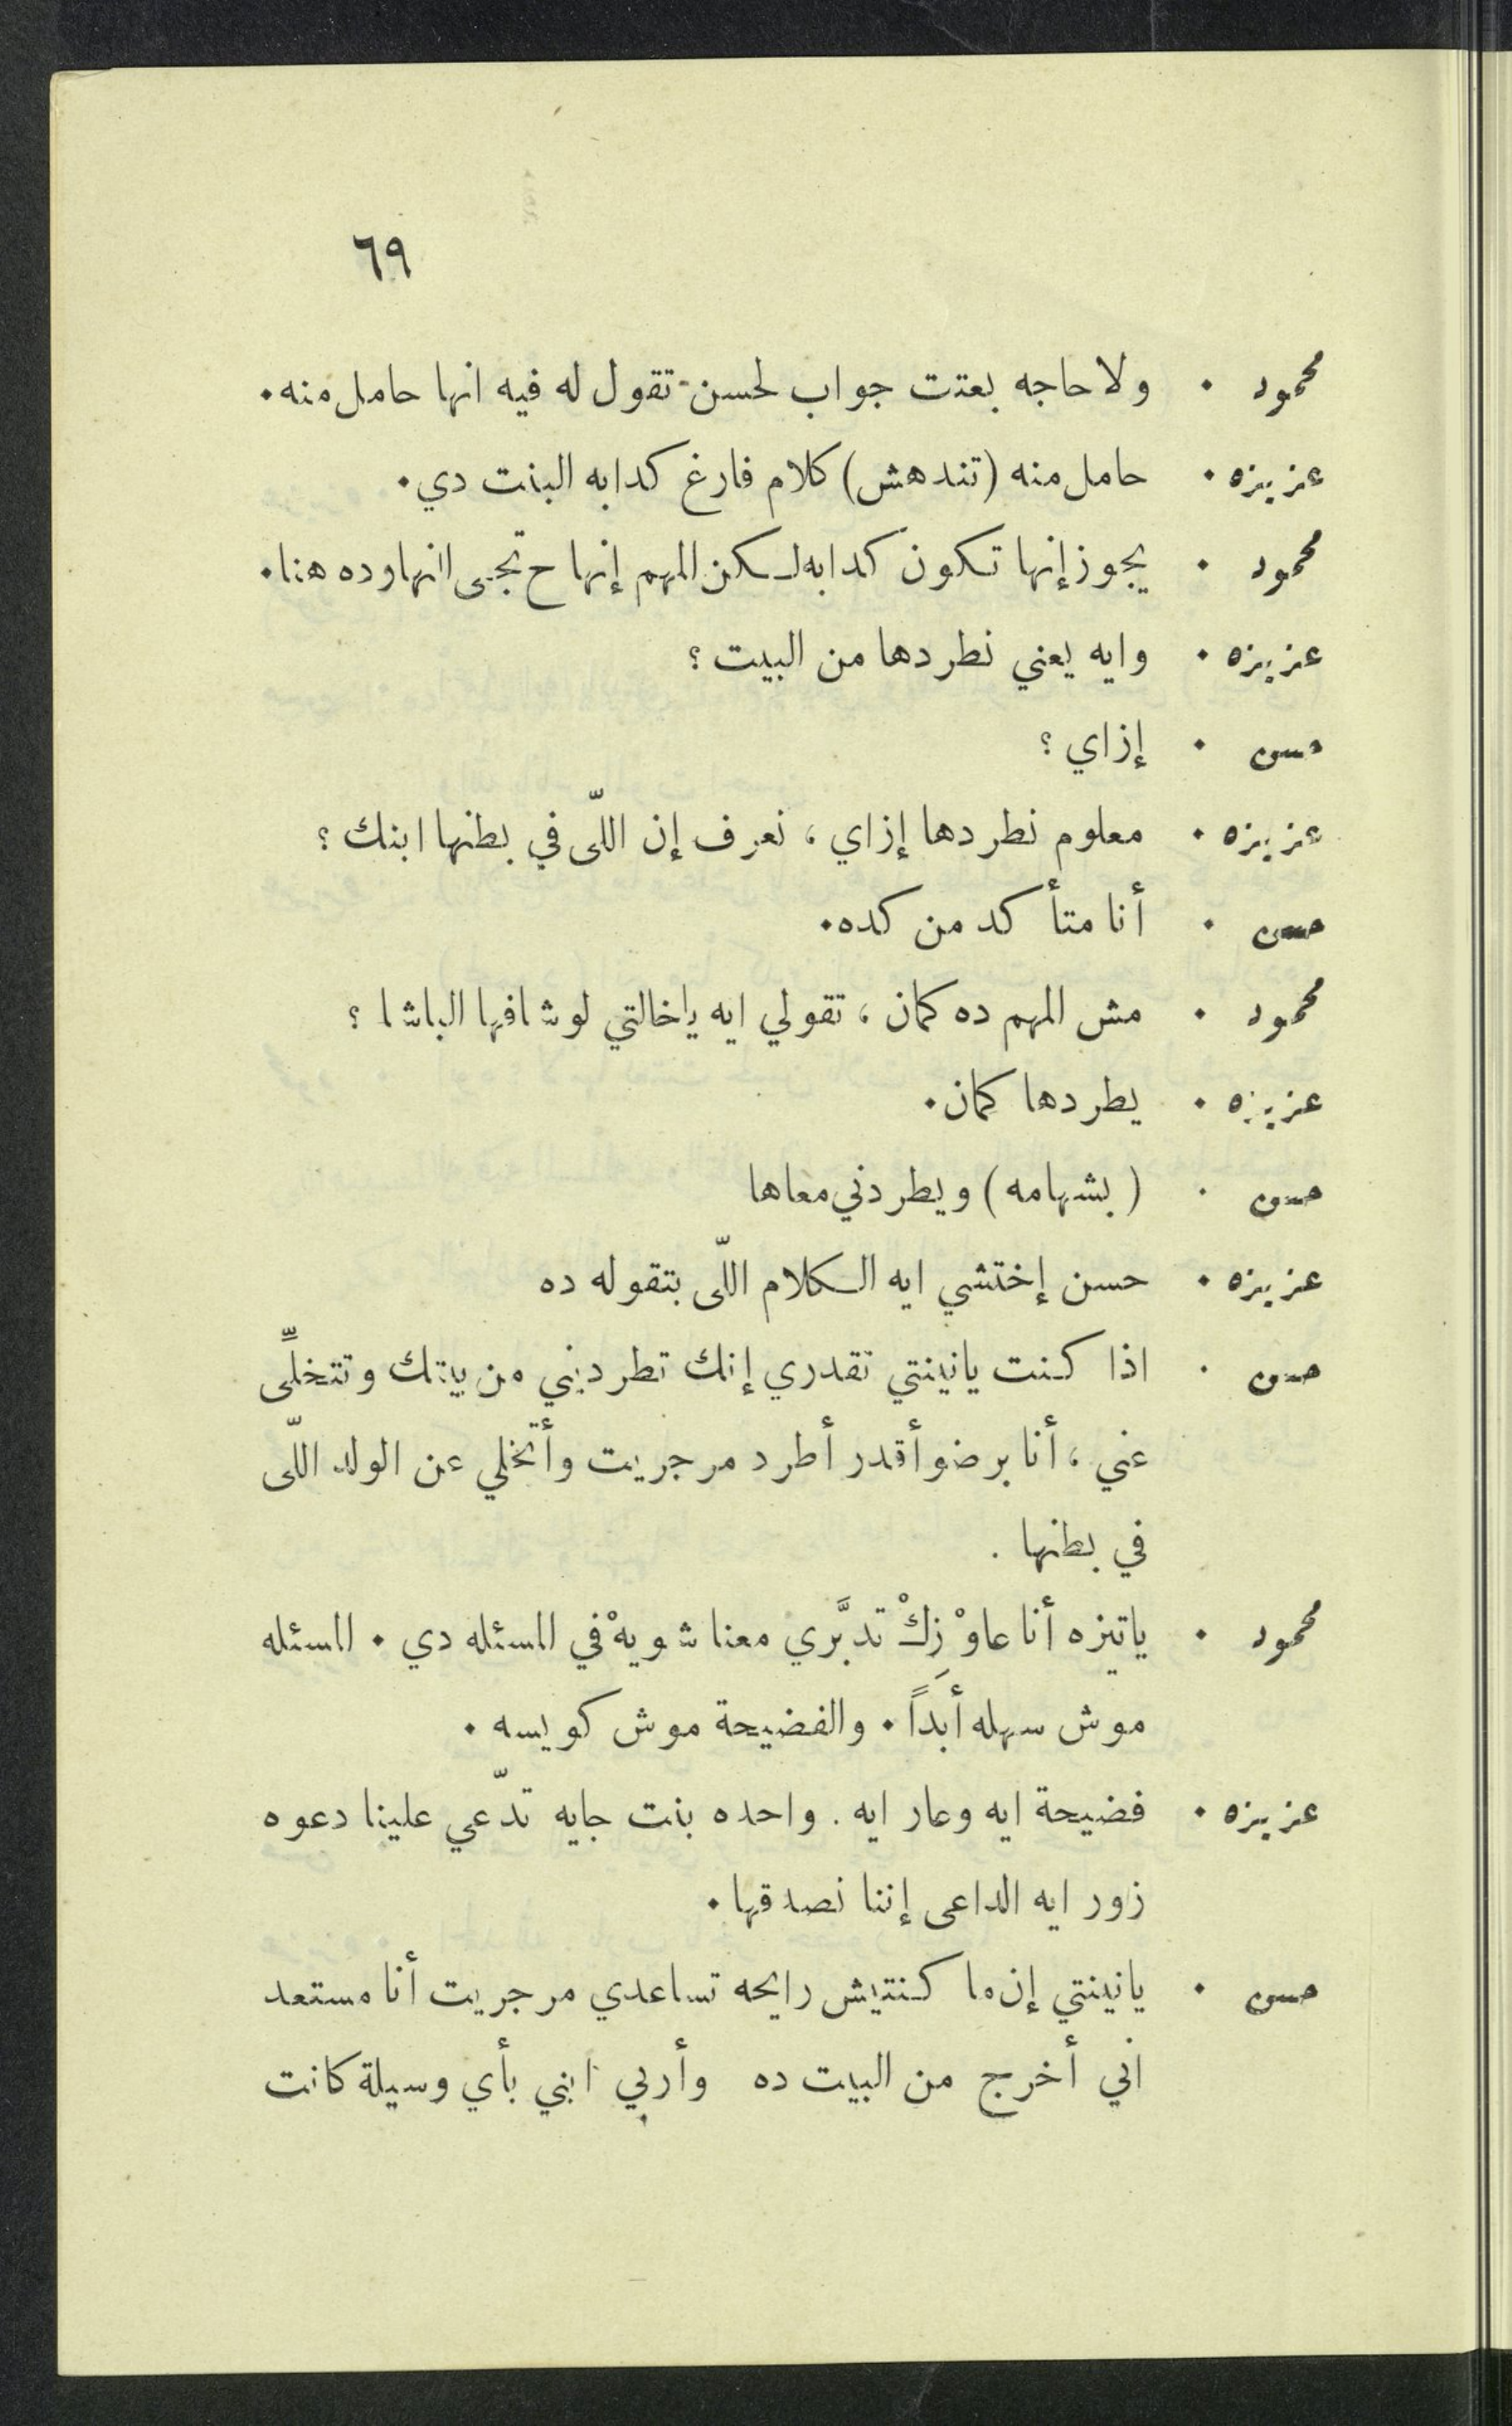 ٦٩
محمود . ولا حاجه بعتت جواب لحسن تقول له فيه انها حامل منه.
عزيزه . حامل منه (تندهش) كلام فارغ كدابه البنت دي.
محمود . يجوز إنها تكون كدابه لكن المهم إنها ح تجى انهاوده هنا.
عزيزه . وايه يعني نطردها من البيت ؟
حسن . إزاي ؟
عزيزه . معلوم نطردها إزاي ، نعرف إن اللّى في بطنها ابنك ؟
حسن . أنا متأكد من كده.
محمود . مش المهم ده كمان ، تقولي ايه ياخالتي لو شافها الباشا ؟
عزيزه . يطردها كمان.
حسن . (بشهامه) ويطردني معاها
عزيزه . حسن إختشي ايه الكلام اللّى بتقوله ده
حسن . اذا كنت يانينتي تقدري إنك تطرديني من بيتك وتتخلِّى
عني ، أنا برضو أقدر أطرد مرجريت وأتخلي عن الولد اللّى
في بطنها .
محمود . ياتيزه أنا عاوْزِكْ تدبَّري معنا شويهْ في المسئله دي . المسئله
موش سهله أبَداً . والفضيحة موش كويسه .
عزيزه . فضيحة ايه وعار ايه . واحده بنت جايه تدّعي علينا دعوه
زور ايه الداعى إننا نصدقها .
حسن . يانينتي إن ما كنتيش رايحه تساعدي مرجريت أنا مستعد
اني أخرج من البيت ده وأربي ابني بأي وسيلة كانت